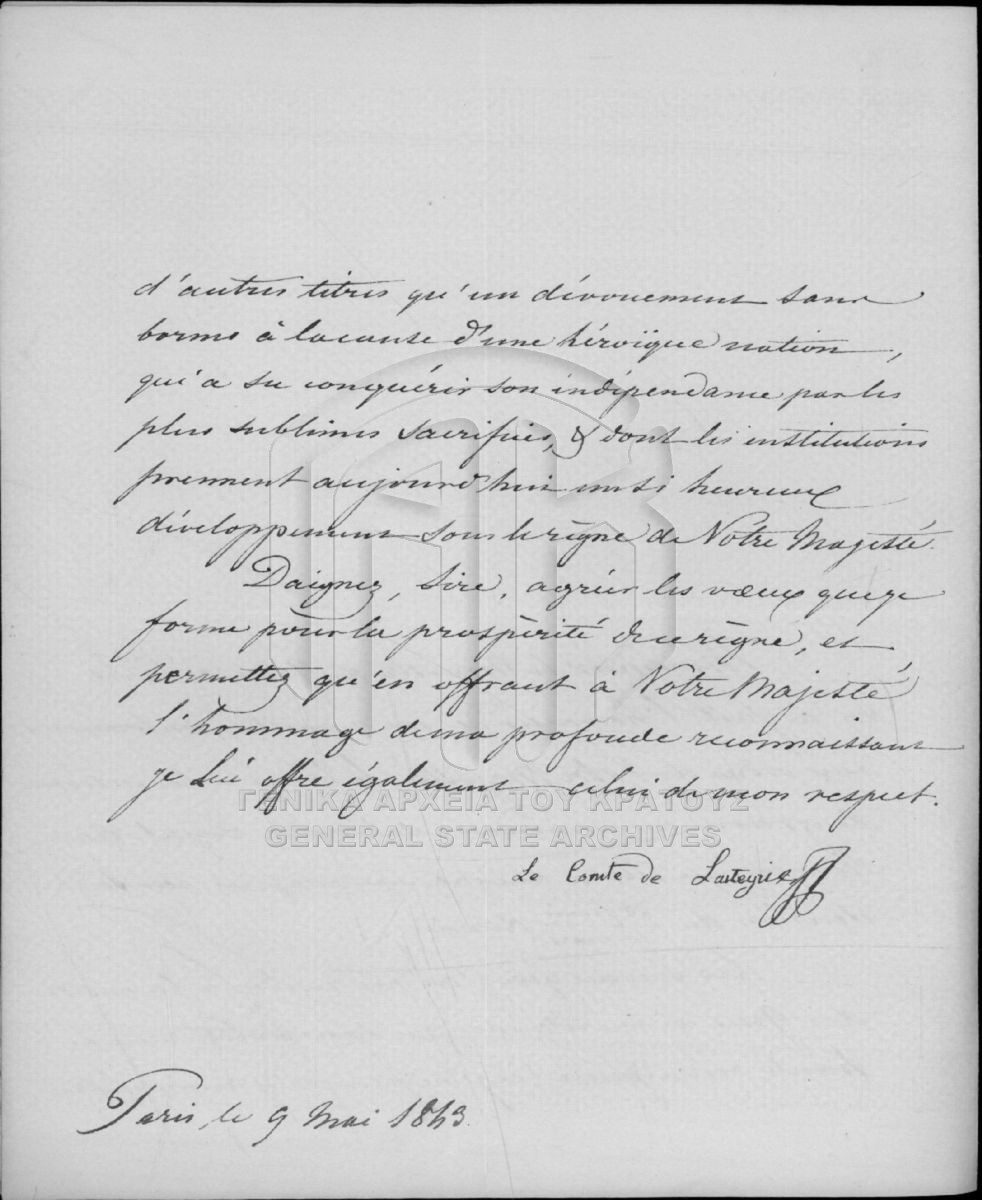 d'autres titres qu'un dévouement sans
borme à la cause d'une héroïque nation,
qui a su conquérir son indépendance par les
plus sublimes sacrifices, & dont les institutions
prennent aujourd'hui un si heureux
développement sous le règne de Votre Majesté.
Daignez, Sire, agréer les vœux que je
forme pour la prospérité de ce règne, et
permettez qu'en offrant à Votre Majesté
l'hommage de ma profonde reconnaissant
je Lui offre également celui de mon respect.
ΓΕΝΙΚΑ ΑΡΧΕΙΑ ΤΟΥ ΚΡΑΤΟΥΣ
GENERAL STATE ARCHIVES
Le Comte de Lasteyrie
Paris, le 9 Mai 1843.